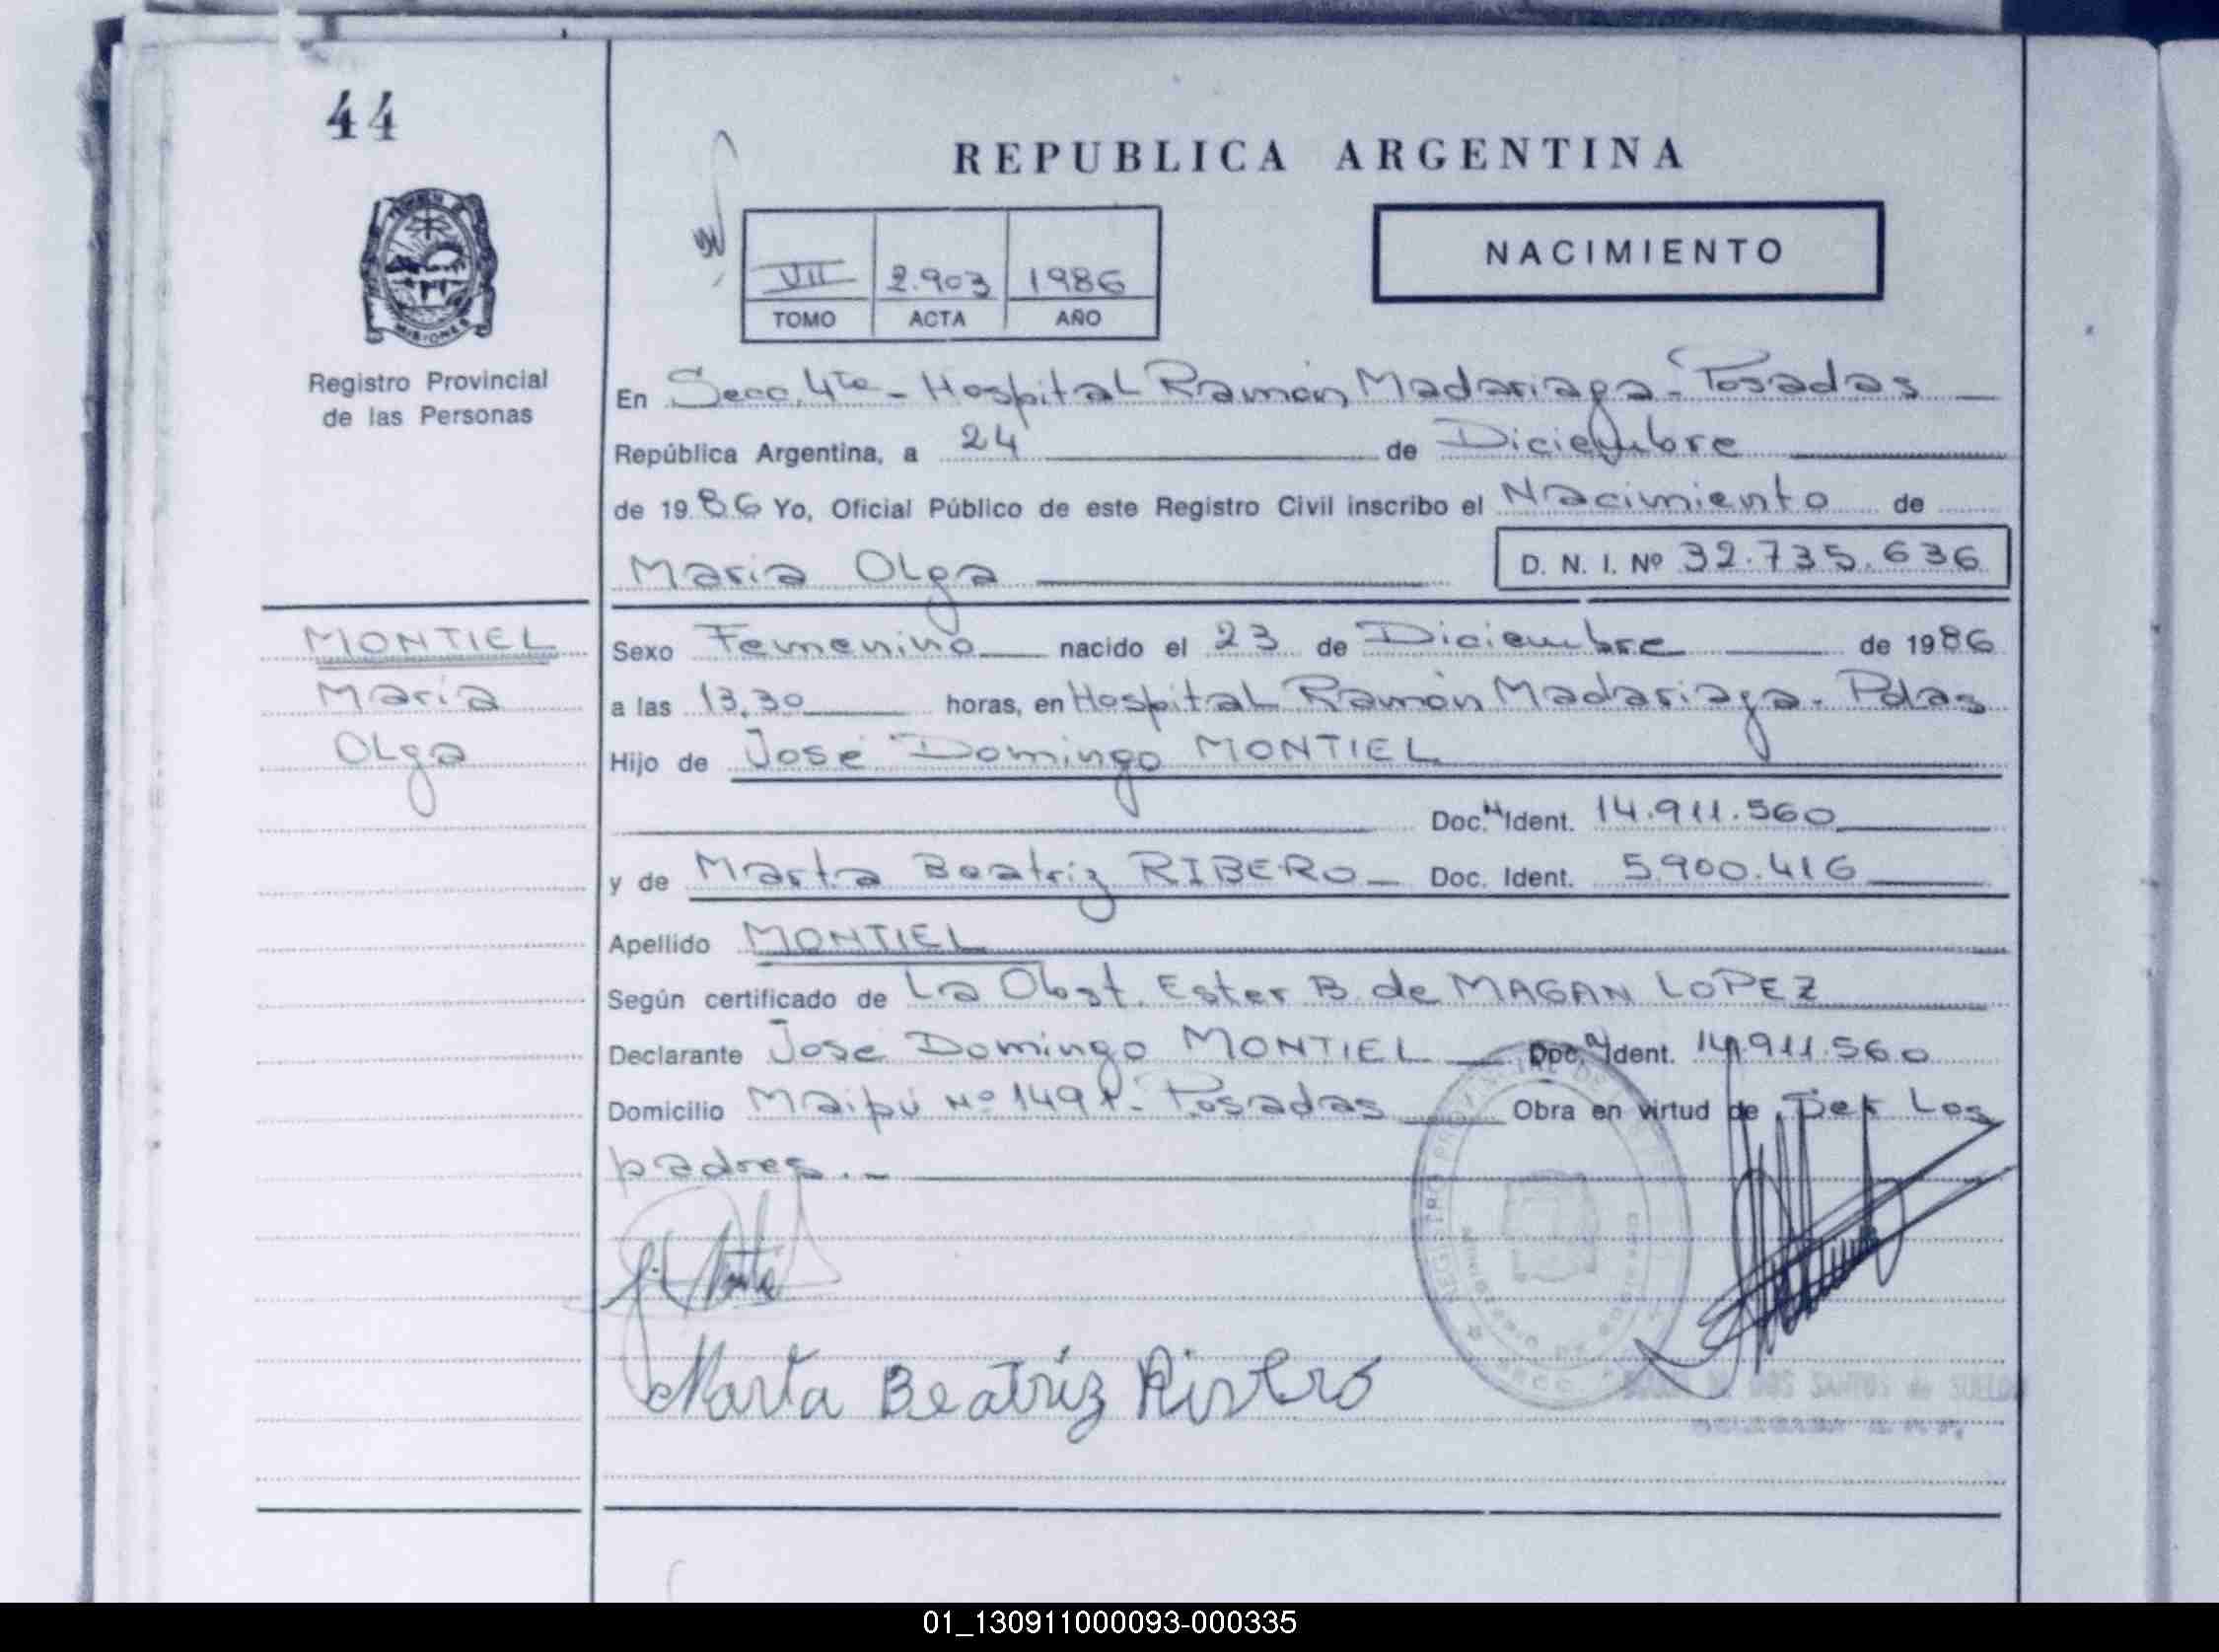 44
REPUBLICA ARGENTINA
NACIMIENTO
VII 2.903 1986
TOMO ACTA AÑO
MISIONES
Registro Provincial
de las Personas
En Secc. 4ta - Hospital Ramón Madariaga - Posadas
República Argentina, a 24 de Diciembre
de 1986 Yo, Oficial Público de este Registro Civil inscribo el Nacimiento de
Maria Olga D. N. I. Nº 32.735.636
MONTIEL
Maria
Olga
Sexo Femenino nacido el 23 de Diciembre de 1986
a las 13,30 horas, en Hospital Ramón Madariaga - Pdas
Hijo de José Domingo MONTIEL
Doc. N Ident. 14.911.560
y de Marta Beatriz RIBERO - Doc. Ident. 5.900.416
Apellido MONTIEL
Según certificado de La Obst. Ester B. de MAGAN LOPEZ
Declarante José Domingo MONTIEL Doc. Ident. 14.911.560
Domicilio Maipú Nº 149 Posadas Obra en virtud de Los
padres. -
Marta Beatriz Rivero
REGISTRO PROVINCIAL DE
DOS SANTOS de SUELDO
01_130911000093-000335